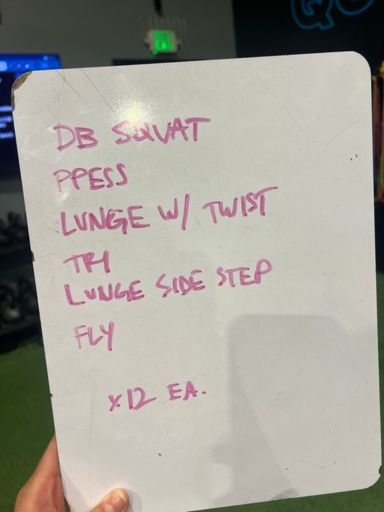 DB SQUAT
PPESS
LUNGE W/ TWIST
TRI
LUNGE SIDE STEP
FLY
x12 EA.